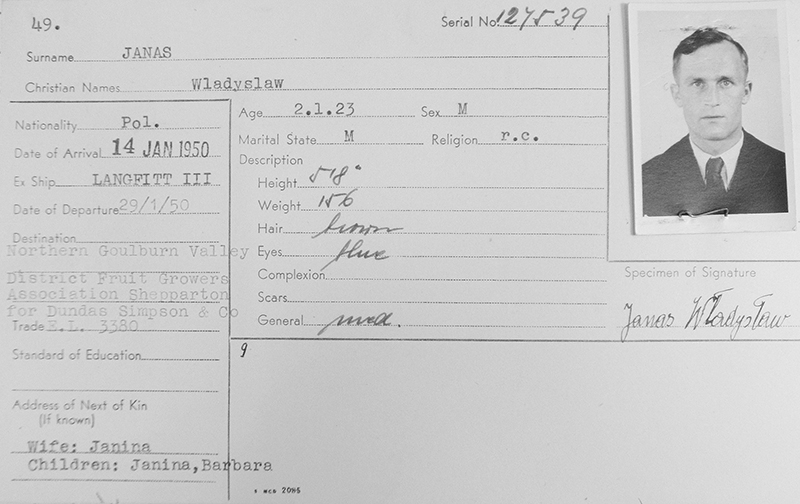 49.
Serial No. 127539
Surname JANAS
Christian Names Wladyslaw
Nationality Pol.
Date of Arrival 14 JAN 1950
Ex Ship LANGFITT III
Date of Departure 29/1/50
Destination
Northern Goulburn Valley
District Fruit Growers
Association Shepparton
for Dundas Simpson & Co
Trade E.L. 3380
Standard of Education
Address of Next of Kin
(If known)
Wife: Janina
Children: Janina,Barbara
Age 2.1.23 Sex M
Marital State M Religion r.c.
Description
Height 5'8"
Weight 156
Hair brown
Eyes blue
Complexion
Scars
General med.
9
Specimen of Signature
Janas Władysław